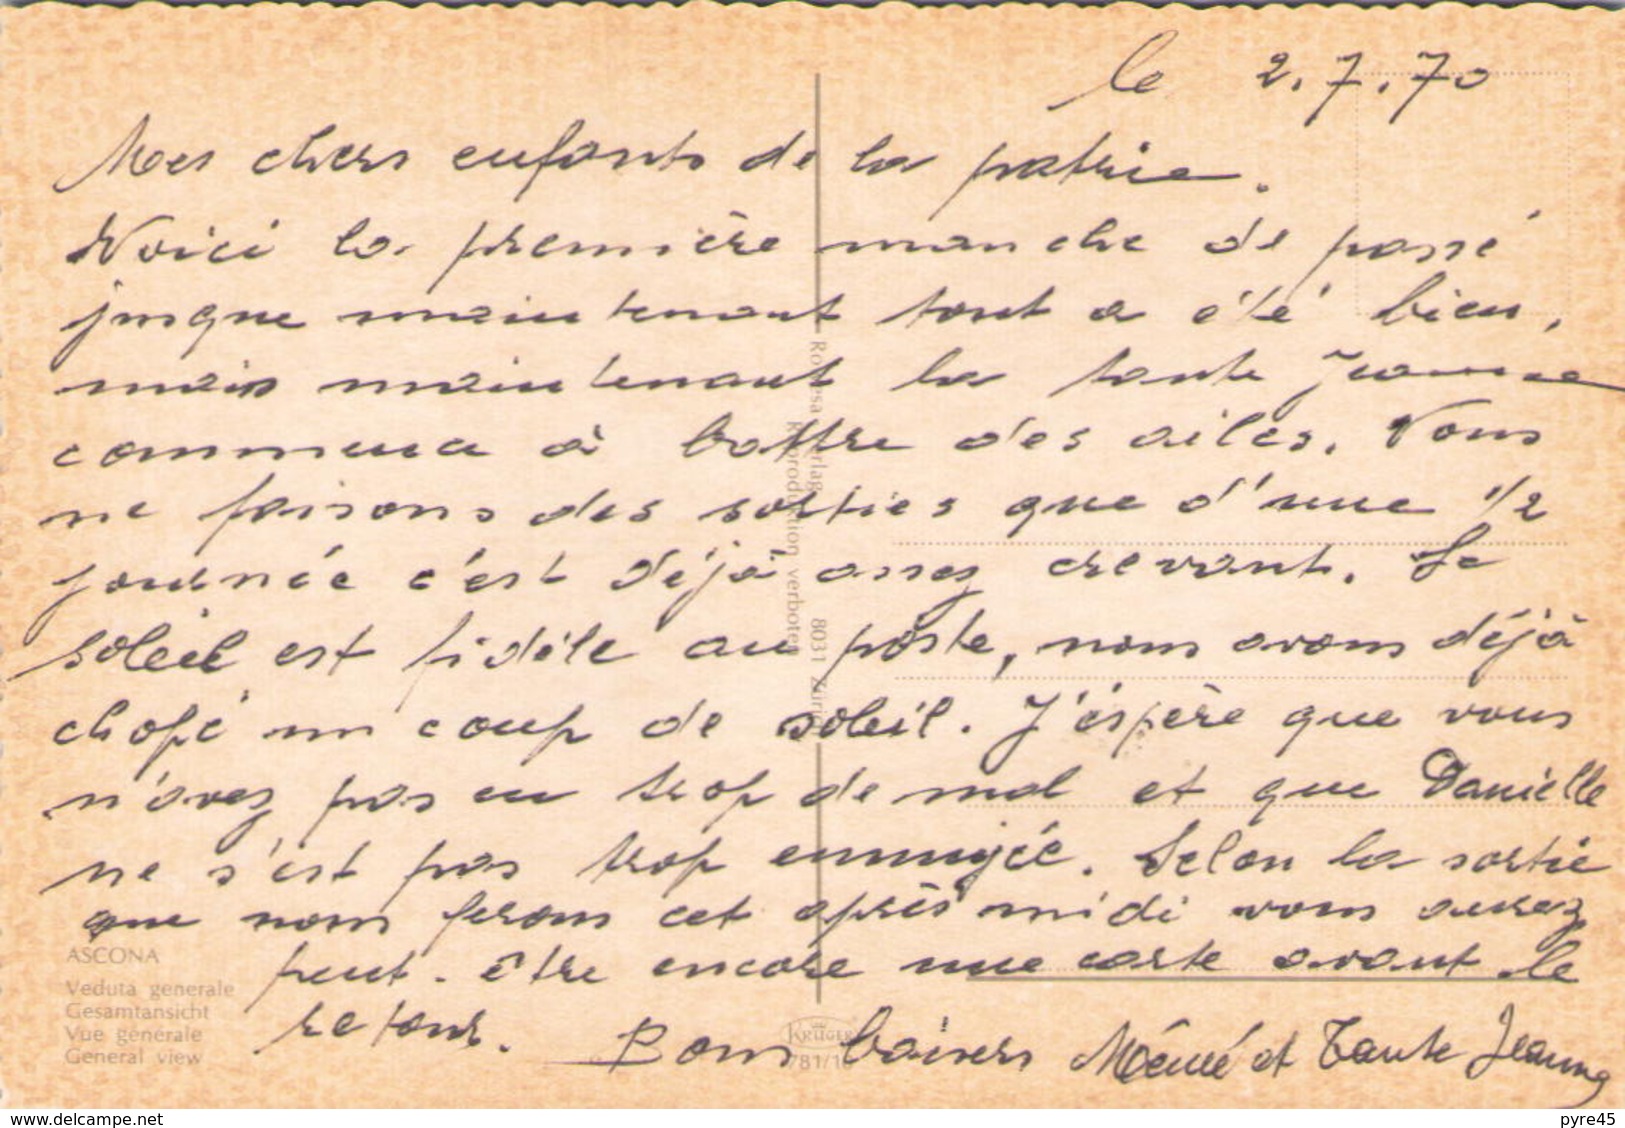 le 2.7.70
Mes chers enfants de la patrie.
Voici la première manche de passé
jusque maintenant tout a été bien,
mais maintenant la tante Jeanne
commence à battre des ailes. Nous
ne faisons des sorties que d'une 1/2
journée c'est déjà assez crevant. Le
soleil est fidèle au poste, nous avons déjà
chopé un coup de soleil. J'éspère que vous
n'avez pas eu trop de mal et que Danielle
ne s'est pas trop ennuyée. Selon la sortie
que nous ferons cet après midi vous aurez
peut-être encore une carte avant le
retour.
Bons baisers Mémé et Tante Jeanne
ASCONA
Veduta generale
Gesamtansicht
Vue générale
General view
KRÜGER
781/16
Reproduktion verboten
8031 Zürich
delcampe.net
pyre45